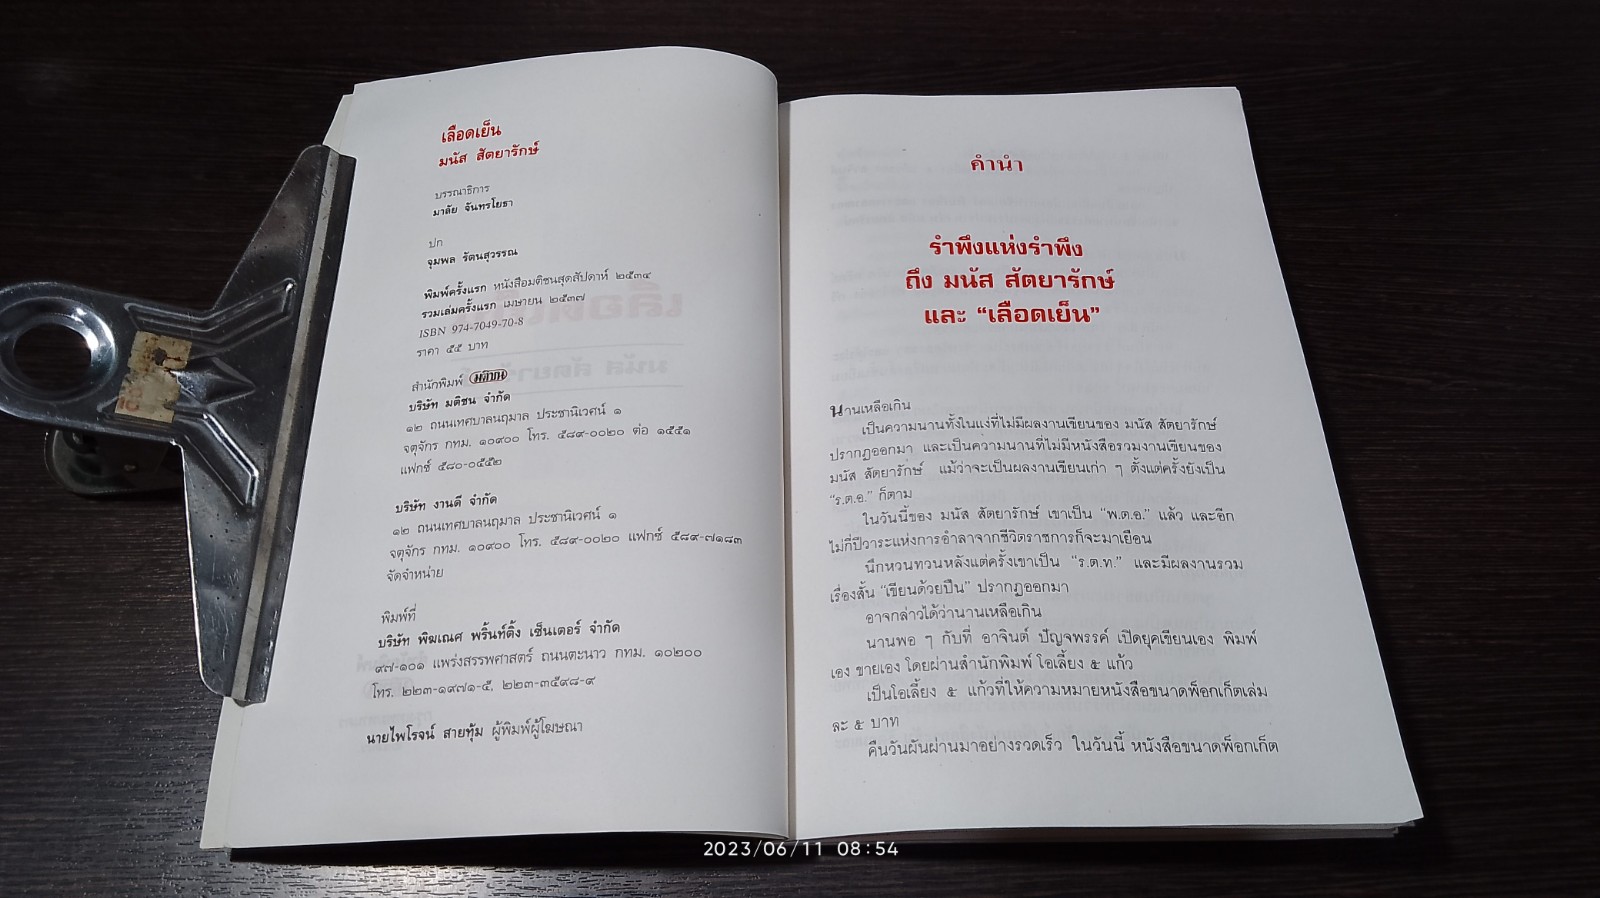 เลือดเย็น
มนัส สัตยารักษ์
บรรณาธิการ
มาลัย จันทรโยธา
ปก
จุมพล รัตนสุวรรณ
พิมพ์ครั้งแรก หนังสือมติชนสุดสัปดาห์ ๒๕๓๔
รวมเล่มครั้งแรก เมษายน ๒๕๓๗
ISBN 974-7049-70-8
ราคา ๕๕ บาท
สำนักพิมพ์ มติชน
บริษัท มติชน จำกัด
๑๒ ถนนเทศบาลนฤมาล ประชานิเวศน์ ๑
จตุจักร กทม. ๑๐๙๐๐ โทร. ๕๘๙-๐๐๒๐ ต่อ ๑๕๕๑
แฟกซ์ ๕๘๐-๐๕๕๒
บริษัท งานดี จำกัด
๑๒ ถนนเทศบาลนฤมาล ประชานิเวศน์ ๑
จตุจักร กทม. ๑๐๙๐๐ โทร. ๕๘๙-๐๐๒๐ แฟกซ์ ๕๘๙-๗๑๘๓
จัดจำหน่าย
พิมพ์ที่
บริษัท พิฆเณศ พริ้นท์ติ้ง เซ็นเตอร์ จำกัด
๙๗-๑๐๑ แพร่งสรรพศาสตร์ ถนนตะนาว กทม. ๑๐๒๐๐
โทร. ๒๒๓-๑๙๗๑-๕, ๒๒๓-๓๕๙๘-๙
นายไพโรจน์ สายทุ้ม ผู้พิมพ์ผู้โฆษณา
คำนำ
รำพึงแห่งรำพึง
ถึง มนัส สัตยารักษ์
และ “เลือดเย็น”
นานเหลือเกิน
เป็นความนานทั้งในแง่ที่ไม่มีผลงานเขียนของ มนัส สัตยารักษ์
ปรากฏออกมา และเป็นความนานที่ไม่มีหนังสือรวมงานเขียนของ
มนัส สัตยารักษ์ แม้ว่าจะเป็นผลงานเขียนเก่า ๆ ตั้งแต่ครั้งยังเป็น
“ร.ต.อ.” ก็ตาม
ในวันนี้ของ มนัส สัตยารักษ์ เขาเป็น “พ.ต.อ.” แล้ว และอีก
ไม่กี่ปีวาระแห่งการอำลาจากชีวิตราชการก็จะมาเยือน
นึกหวนทวนหลังแต่ครั้งเขาเป็น “ร.ต.ท.” และมีผลงานรวม
เรื่องสั้น “เขียนด้วยปืน” ปรากฏออกมา
อาจกล่าวได้ว่านานเหลือเกิน
นานพอ ๆ กับที่ อาจินต์ ปัญจพรรค์ เปิดยุคเขียนเอง พิมพ์
เอง ขายเอง โดยผ่านสำนักพิมพ์ โอเลี้ยง ๕ แก้ว
เป็นโอเลี้ยง ๕ แก้วที่ให้ความหมายหนังสือขนาดพ็อกเก็ตเล่ม
ละ ๕ บาท
คืนวันผันผ่านมาอย่างรวดเร็ว ในวันนี้ หนังสือขนาดพ็อกเก็ต
2023/06/11 08:54